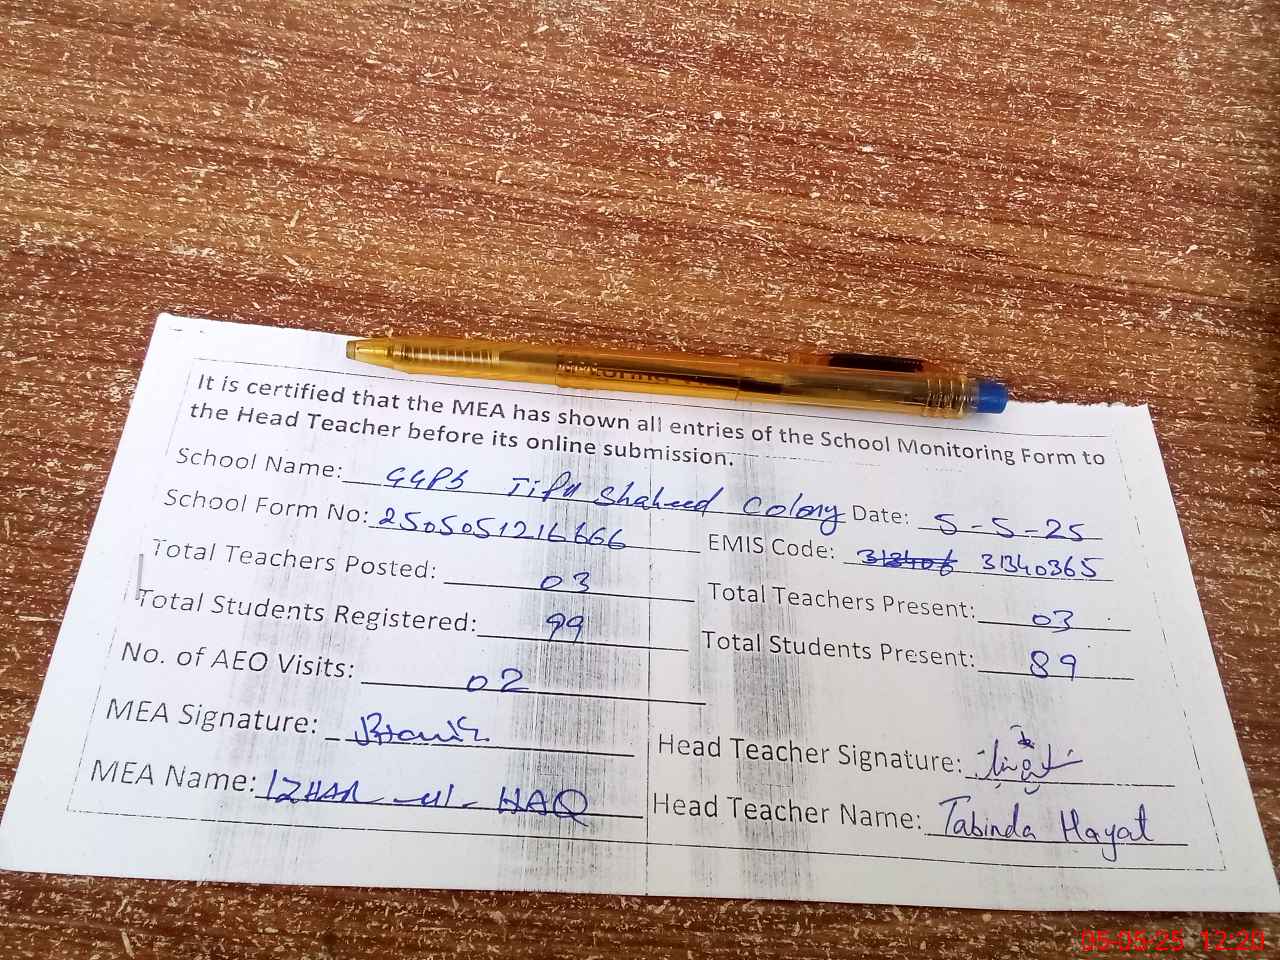 It is certified that the MEA has shown all entries of the School Monitoring Form to
the Head Teacher before its online submission.
School Name: GGPS Tipu Shaheed Colony Date: 5-5-25
School Form No: 2505051216666 EMIS Code: 31340365
Total Teachers Posted: 03 Total Teachers Present: 03
Total Students Registered: 99 Total Students Present: 89
No. of AEO Visits: 02
MEA Signature: Head Teacher Signature:
MEA Name: IZHAR-ul-HAQ Head Teacher Name: Tabinda Hayat
05-05-25 12:20